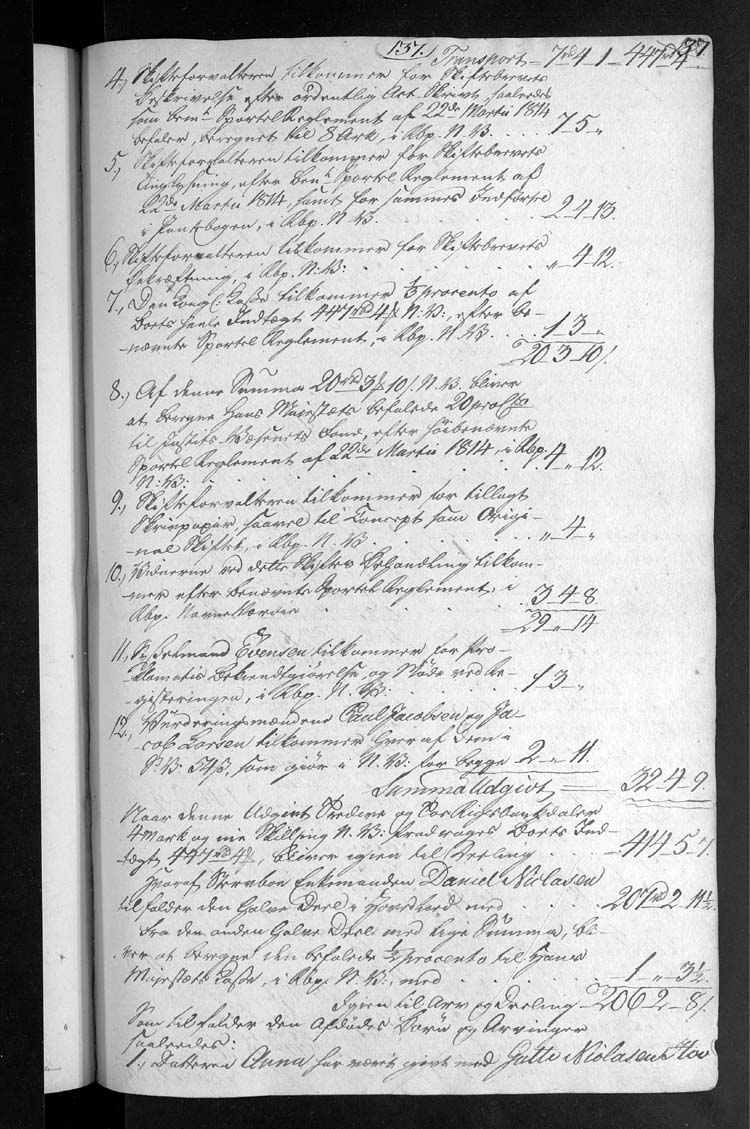 137.
137
Transport - 7 rd 4 1 - 447 rd 4 "
4., Skifteforvalteren tilkommer for Skiftebrevets
Beskrivelse efter ordentlig Act Skrivt, saaledes
som bem.te Sportel Reglement af 22de Martii 1814
befaler, beregnet til 8 Ark, i Rbp. N. V. . . . 7 5 "
5., Skifteforvalteren tilkommer for Skiftebrevets
Tinglysning, efter bem.te Sportel Reglement af
22de Martii 1814, samt for sammes Indførsel
i Pantebogen, i Rbp. N. V. . . . 2 4 13.
6., Skifteforvalteren tilkommer for Skiftebrevets
Bekræftning, i Rbp. N: V: . . . " 4 12.
7., Den Kongl: Kasse tilkommer 1/3 procento af
Boets heele Indtægt 447 rbd 4 /: N. V:, efter be-
-nævnte Sportel Reglement, i Rbp. N. V. . . . 1 3 "
20 3 10/.
8., Af denne Summa 20 rd 3 10/. N. V. bliver
at beregne Hans Majestæts befalede 20 pro Cto
til Justits-Væsenets Fond, efter høibenævnte
Sportel Reglement af 22de Martii 1814, i Rbp. 4 " 12.
N: V:
9., Skifteforvalteren tilkommer for tillagt
Skrivpapir, saavel til Concept som Origi-
-nal Skiftet, i Rbp. N. V. . . . " 4 "
10., Vidnerne ved dette Skiftes Behandling tilkom-
-mer efter benævnte Sportel Reglement, i
Rbp. Navneværdie . . . 3 4 8.
29 " 14
11., Lensmand Evensen tilkommer for Pro-
-klamatis Bekiendtgiørelse, og Møde ved Re-
-gisteringen, i Rbp. N. V: . . . 1 3 "
12., Vurderingsmændene Paul Jacobsen og Ja-
-cob Larsen tilkommer hver af dem i
S: V: 54 /3, som giør i N. V: for begge 2 " 11.
Summa Udgivt 32 4 9.
Naar denne Udgivt Tredive og Toe Rigsbankdaler
4 Mark og nie Skilling N. V: fradrages Boets Ind-
-tægt 447 rd 4 /, bliver igien til Deeling . . . 414 5 7.
Hvoraf Stervboe Enkemanden Daniel Niclasen
tilfalder den halve Deel i Hovedlod med . . . 207 rd 2 11½
Fra den anden halve Deel med lige Summa, bli-
-ver at beregne den befalede ½ procento til Hans
Majestæts Kasse, i Rbp. N. V:, med . . . 1 " 3½.
Igien til Arv og Deeling 206 2 8/.
Som tilfalder den Afdødes Børn og Arvinger
saaledes:
1., Datteren Anna har været givt med Gutte Niclasen Hov